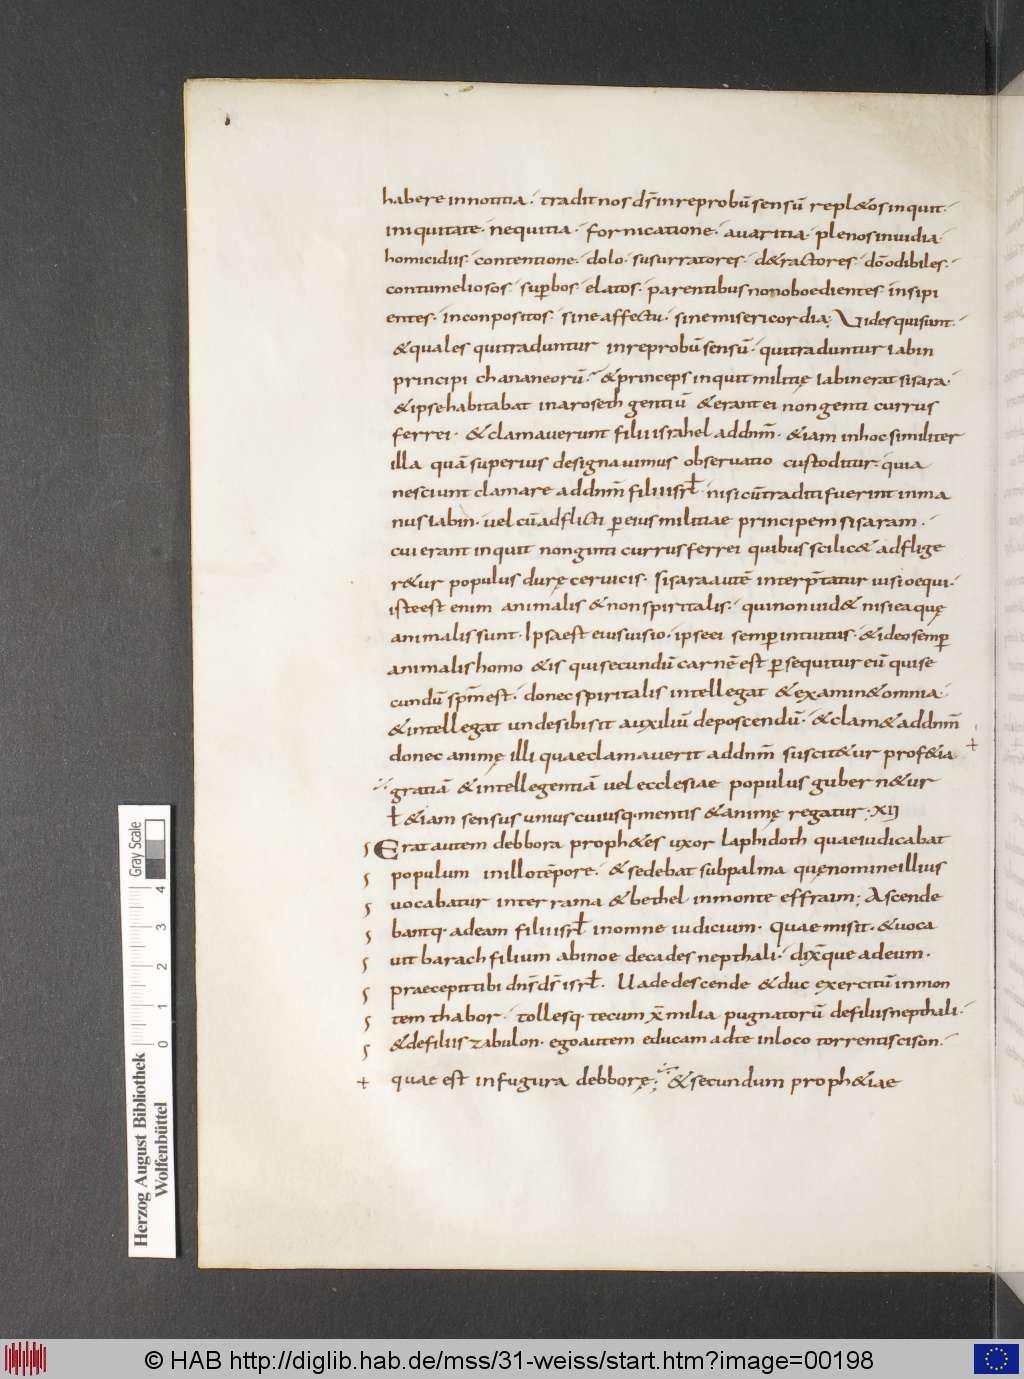 habere innotitia · tradit nos ds̄ inreprobū sensū repl&os inquit ·
iniquitate · nequitia · fornicatione · avaritia · plenos inuidia ·
homicidiis · contentione · dolo · susurratores · d&ractores dō odibiles ·
contumeliosos · superbos · elatos · parentibus non oboedientes · insipi
entes · inconpositos · sine affectu · sine misericordia; Uides qui sunt ·
& quales qui traduntur inreprobū sensū · qui traduntur iabin
principi chananeorū · & princeps inquit militię iabin erat sisara ·
& ipse habitabat inaroseth gentiū & erant ei nongenti currus
ferrei · & clamauerunt filii israhel ad dnm̄ · &iam inhoc similiter
illa quā superius designauimus obseruatio custoditur · quia
nesciunt clamare ad dnm̄ filii isrł · nisi cū traditi fuerint inma
nus iabin · uel cū adflicti per eius militiae principem sisaram ·
cui erant inquit nonginti currus ferrei quibus scilic& adflige
r&ur populus durę ceruicis · sisara autē interpr̄tatur uisio equi ·
iste est enim animalis & non spiritalis · qui non uid& nisi ea quę
animalis sunt · Ipsa est eius uisio · ipse ei semper intuitus · & ideo semper
animalis homo & is qui secundū carnē est persequitur eū qui se
cundū spm̄ est · donec spiritalis intellegat & examin& omnia ·
& intellegat unde sibi sit auxiliū deposcendū · & clam& ad dnm̄
donec animę illi quae clamauerit ad dnm̄ suscit&ur prof&ia +
gratiā & intellegentiā uel ecclesiae populus gubern&ur
ł &iam sensus unius cuiusq· mentis & animę regatur · XII
Erat autem debbora proph&es uxor laphidoth quae iudicabat
populum inillo tēpore · & sedebat sub palma quę nomine illius
uocabatur inter rama & bethel inmonte effraim; Ascende
bantq· ad eam filii isrł inomne iudicium · Quae misit · & uoca
uit barach filium abinoe de cades nepthali · dix̄que ad eum ·
praecepit tibi dns̄ ds̄ isrł · Uade descende & duc exercitū inmon
tem thabor · tollesq· tecum x̄ milia pugnatorū de filiis nepthali ·
& de filiis zabulon · ego autem educam ad te inloco torrentis cison ·
+ quae est infugura debborę; & secundum proph&iae
Herzog August Bibliothek
Wolfenbüttel
Gray Scale
0 1 2 3 4
© HAB http://diglib.hab.de/mss/31-weiss/start.htm?image=00198